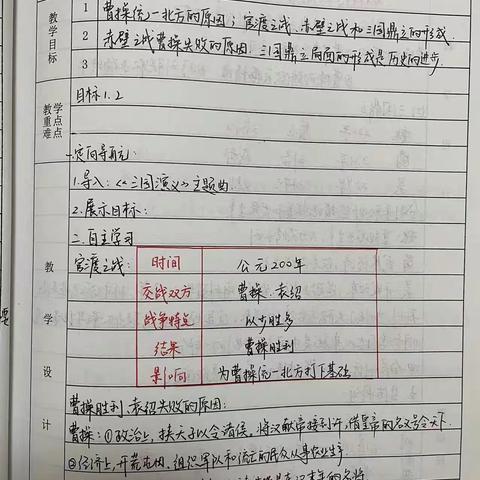 教学目标
1 曹操统一北方的原因；官渡之战、赤壁之战和三国鼎立的形成.
2 赤壁之战曹操失败的原因. 三国鼎立局面的形成是历史的进步.
3
教学重点难点
目标1.2
一.定向导
1.导入：《三国演义》主题曲.
2.展示目标：
二.自主学习
官渡之战：
时间 公元200年
交战双方 曹操、袁绍
战争特点 以少胜多
结果 曹操胜利
影响 为曹操统一北方打下基础
教学设计
曹操胜利、袁绍失败的原因：
曹操：①政治上，挟天子以令诸侯，将汉献帝接到许，借皇帝的名义号令天下.
②经济上，开荒屯田，组织军队和流亡的民众从事农业生产.
要